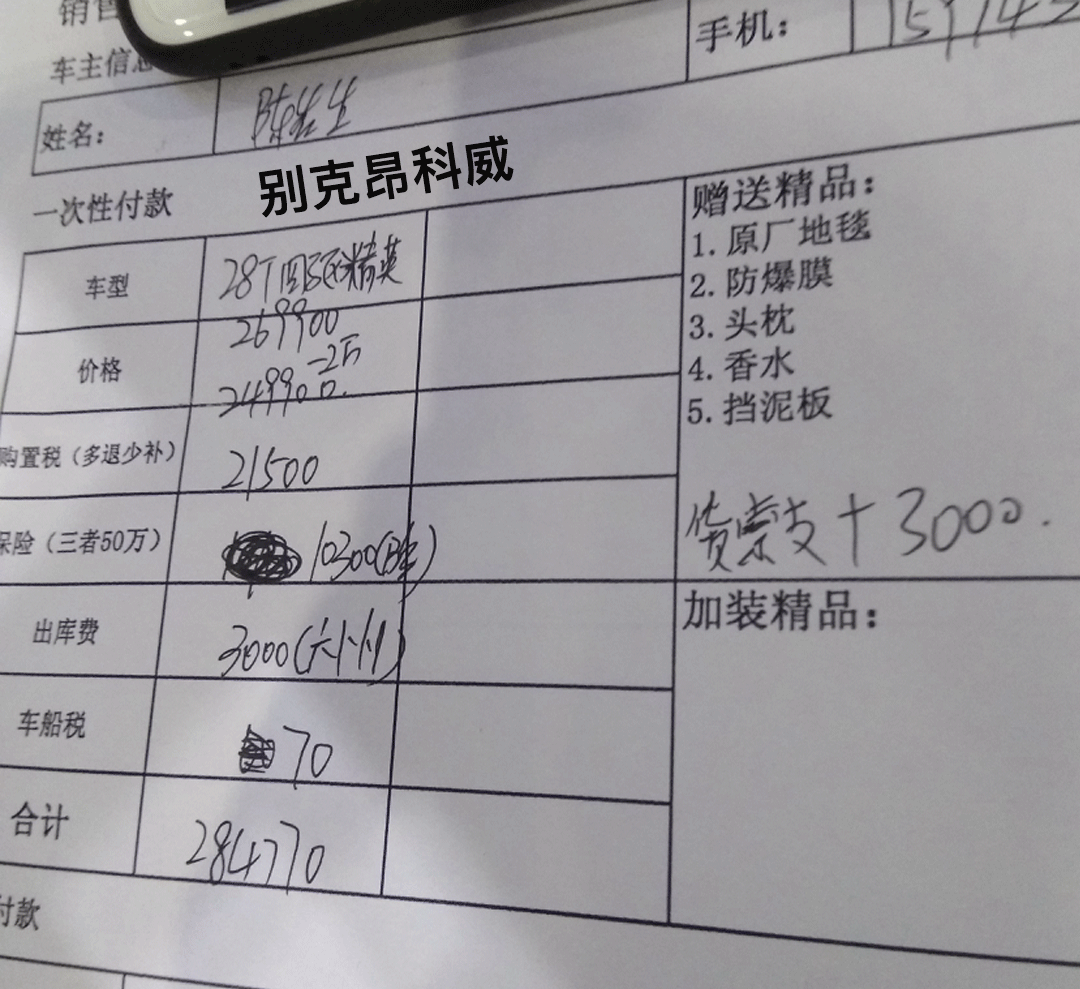 销售
车主信息
姓名: 陈先生
手机: 159143
别克昂科威
一次性付款
车型 28T 四驱精英
价格 269900
-2万
249900.
购置税（多退少补） 21500
保险（三者50万） 10300(B车)
出库费 3000(六小件)
车船税 70
合计 284770
付款
赠送精品:
1. 原厂地毯
2. 防爆膜
3. 头枕
4. 香水
5. 挡泥板
+3000.
加装精品: